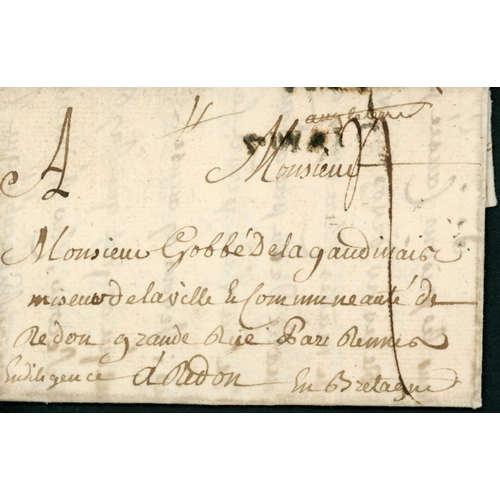 angleterre
A Monsieur
Monsieur Gobbé De la gaudinais
miseur de la ville & Communeauté de
Redon grande Rue Par Rennes
En diligence à Redon En Bretagne